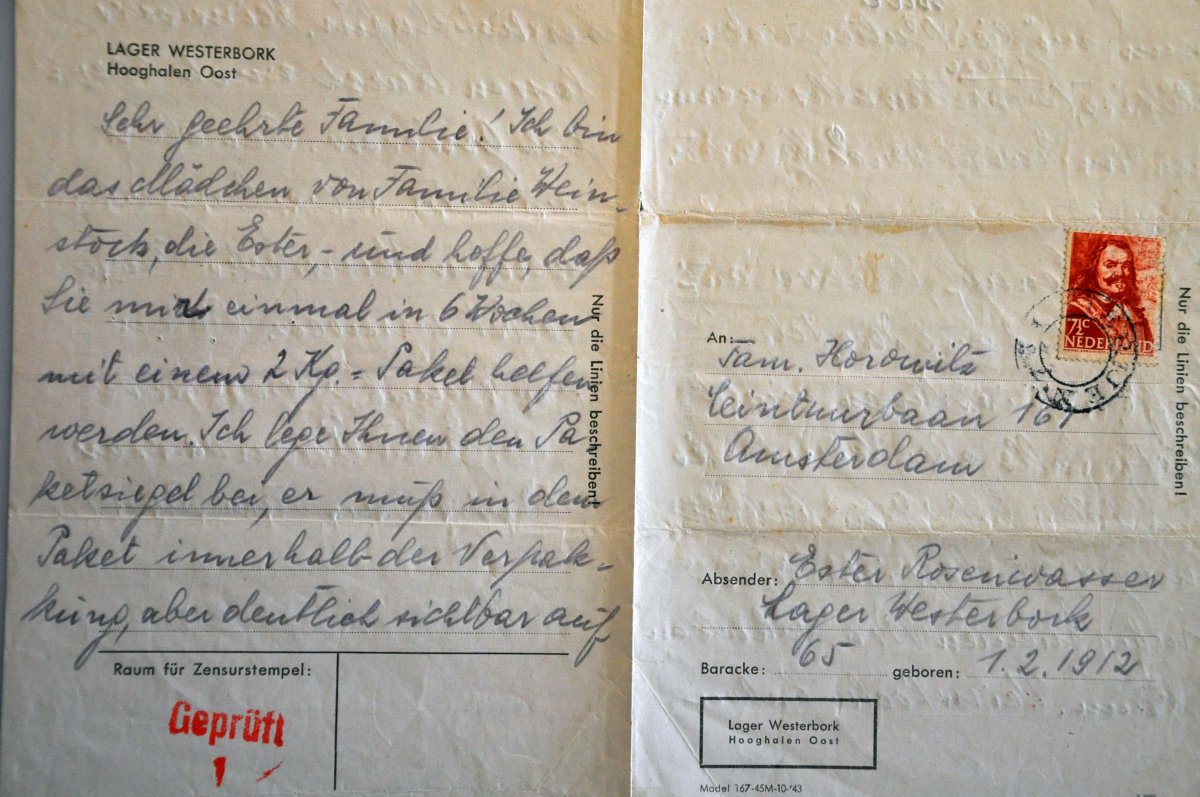 LAGER WESTERBORK
Hooghalen Oost
Sehr geehrte Familie! Ich bin
das Mädchen von Familie Wein-
stock, die Ester,- und hoffe, daß
Sie mir einmal in 6 Wochen
mit einem 2 Kg.= Paket helfen
werden. Ich lege Ihnen den Pa-
ketsiegel bei, er muß in dem
Paket innerhalb der Verpak-
kung, aber deutlich sichtbar auf
Nur die Linien beschreiben!
Raum für Zensurstempel:
Geprüft
1
7½c
NEDERLAND
An: Fam. Horowitz
Ceintuurbaan 161
Amsterdam
Nur die Linien beschreiben!
Absender: Ester Rosenwasser
Lager Westerbork
Baracke: 65 geboren: 1.2.1912
Lager Westerbork
Hooghalen Oost
Model 167-45M-10-'43